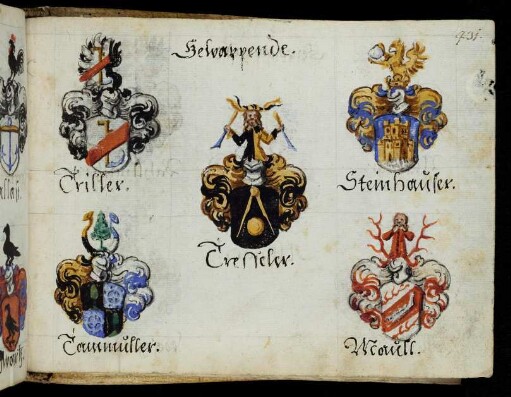 Gewappende.
431.
Triller.
Steinhauser.
Tresseler.
Tanmuller.
Maull.